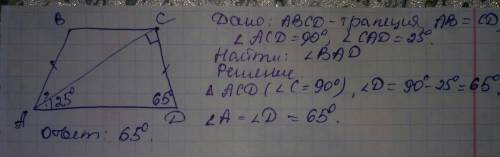 Дано: ABCD - трапеция, AB = CD,
∠ACD = 90°, ∠CAD = 25°.
Найти: ∠BAD
Решение
△ ACD (∠C = 90°), ∠D = 90° - 25° = 65°
∠A = ∠D = 65°.
B
C
25°
65°
A
D
Ответ: 65°.